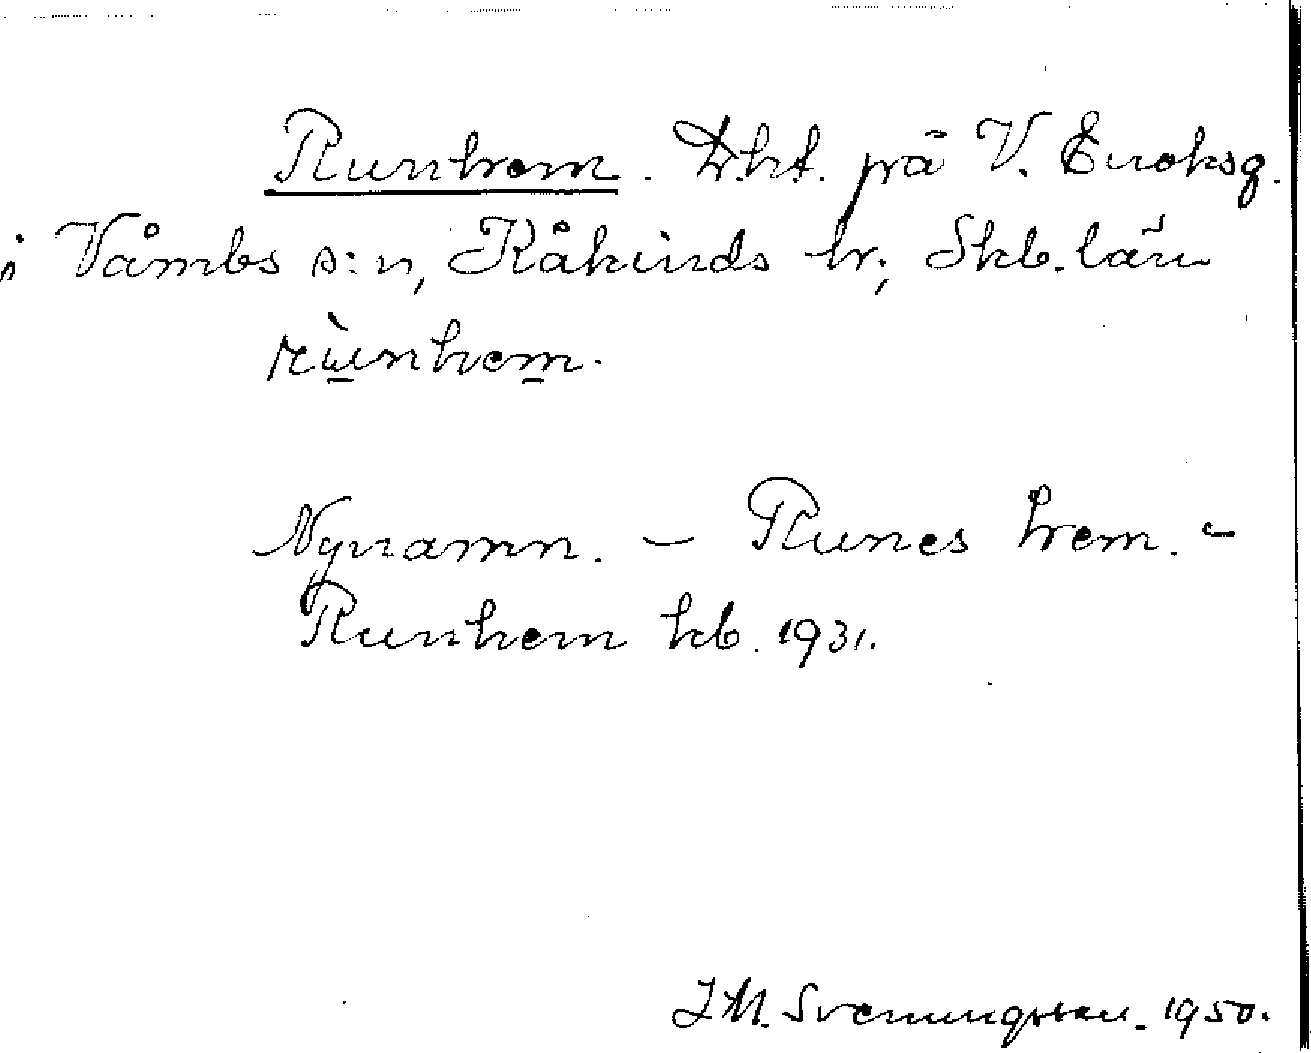 Runhem. Lht. på V. Enoksg.
i Våmbs s:n, Kåkinds hr, Skb. län
rùnhem.
Nynamn. – Runes hem. –
Runhem kb. 1931.
J M. Svenungsson. 1950.